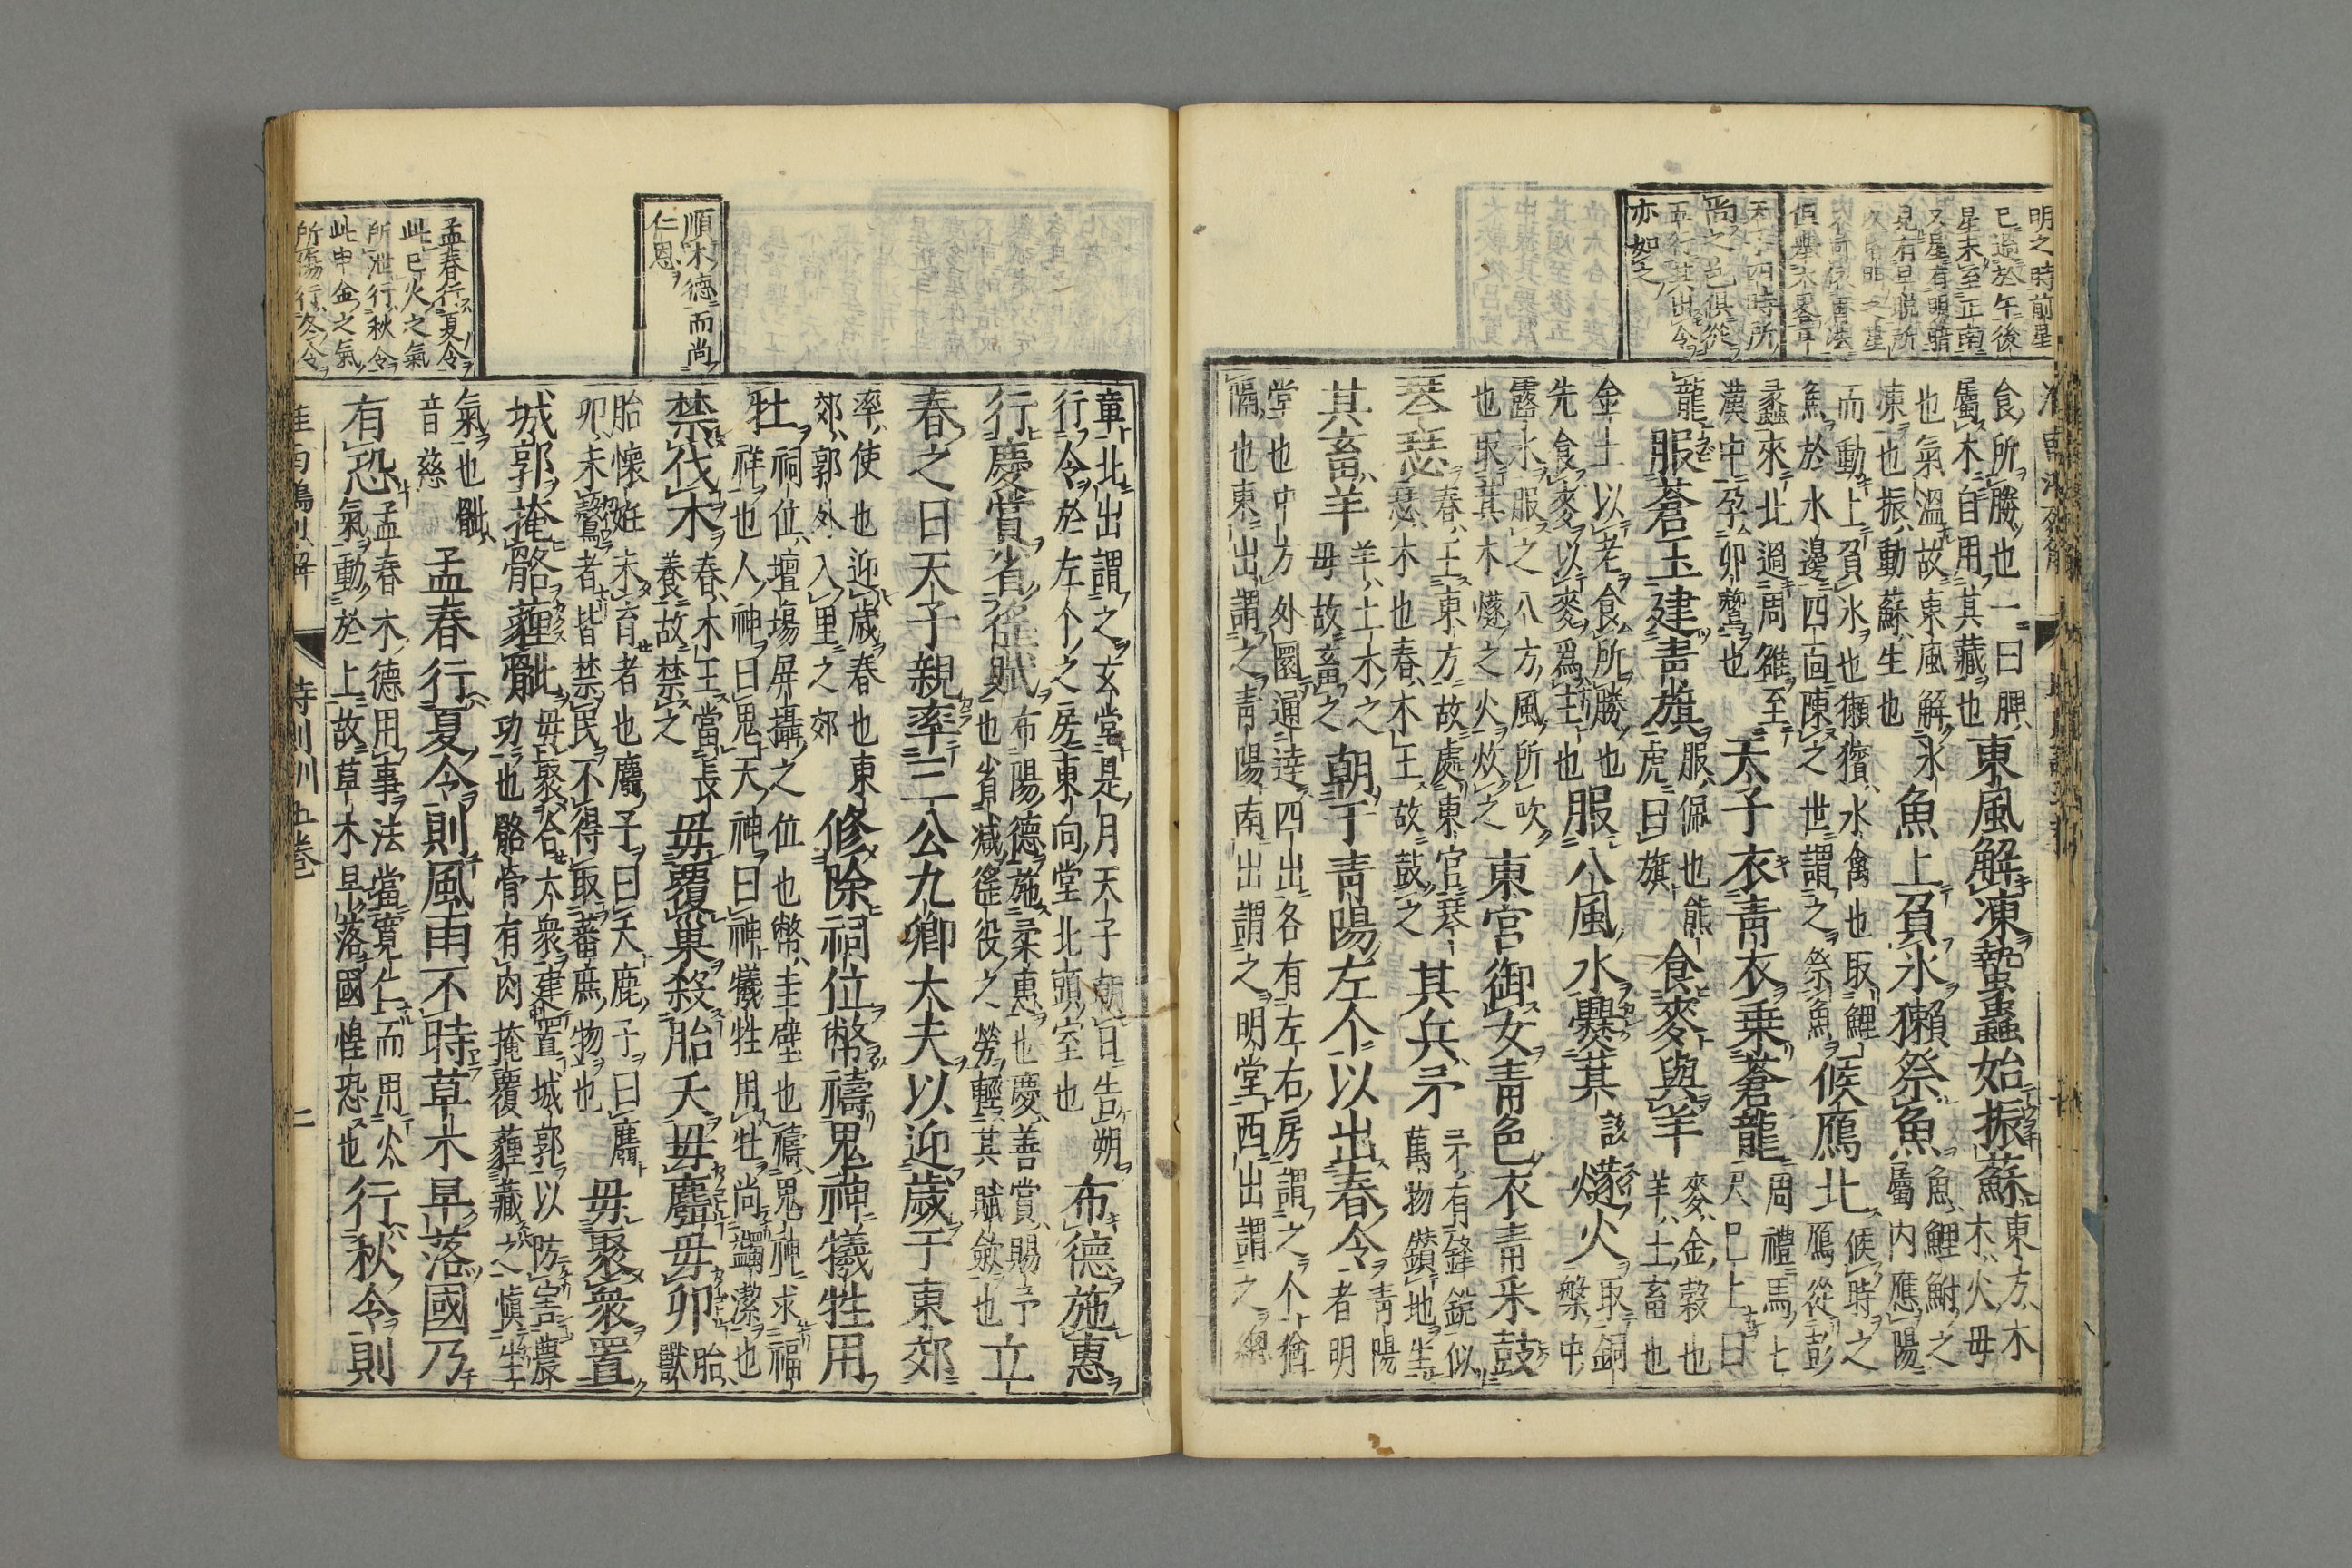 明之時前星
已過於午後
星未至正南
又星有明暗
見有早晩所
但擧大畧耳
天子四時所
尚之色俱從
五行其出令
亦如之
食所勝也一曰脾東風解凍蟄蟲始振蘇東方木木火母
屬木自用其藏也
也氣溫故東風解氷
凍也振動蘇生也魚上負氷獺祭魚魚鯉鮒之屬内應陽
而動上負氷也獺獱水禽也取鯉
魚於水邊四面陳之世謂之祭魚候鴈北候時之鴈從彭
蠡來北過周雒至
漢中孕卵鷇也天子衣青衣乗蒼龍周禮馬七尺已上曰
龍服蒼玉建青旗服佩也熊虎曰旗食麥與羊麥金穀也羊土畜也
金土以老食所勝也
先食麥以麥爲主也服八風水爨萁該燧火取銅槃中
露水服之八方風所吹
也取萁木燧之火炊之東宮御女青色衣青采鼓
琴瑟春王東方故處東宮琴瑟木也春木王故鼓之其兵矛矛有鋒鋭似萬物鑚地生
其畜羊羊土木之母故畜之朝于青陽左个以出春令青陽者明
堂也中方外圜通達四出各有左右房謂之个个猶
隔也東出謂之青陽南出謂之明堂西出謂之總
順木德而尚
仁恩
孟春行夏令
此巳火之氣
所泄行秋令
此申金之氣
所傷行冬令
章北出謂之玄堂是月天子朝日告朔
行令於左个之房東向堂北頭室也布德施惠
行慶賞省徭賦布陽德施柔惠也慶善賞賜予也省減徭役之勞輕其賦斂也立
春之日天子親率三公九卿大夫以迎歲于東郊
率使也迎歲春也東
郊郭外入里之郊修除祠位幣禱鬼神犧牲用
牡祠位壇場屏攝之位也幣圭璧也禱鬼神求福祥也人神曰鬼天神曰神犧牲用牡尚蠲潔也
禁伐木春木王當長養故禁之毋覆巢殺胎夭毋麛毋卵胎獸
胎懷姙未育者也麛子曰夭鹿子曰麛
卵未鷇者皆禁民不得取蕃庶物也毋聚衆置
城郭掩骼薶骴毋聚合大衆建置城郭以防害農功也骼骨有肉掩覆薶藏之愼生
氣也骴
音慈孟春行夏令則風雨不時草木早落國乃
有恐孟春木德用事法當寛仁而用火氣動於上故草木早落國惶恐也行秋令則
時則訓五卷
二